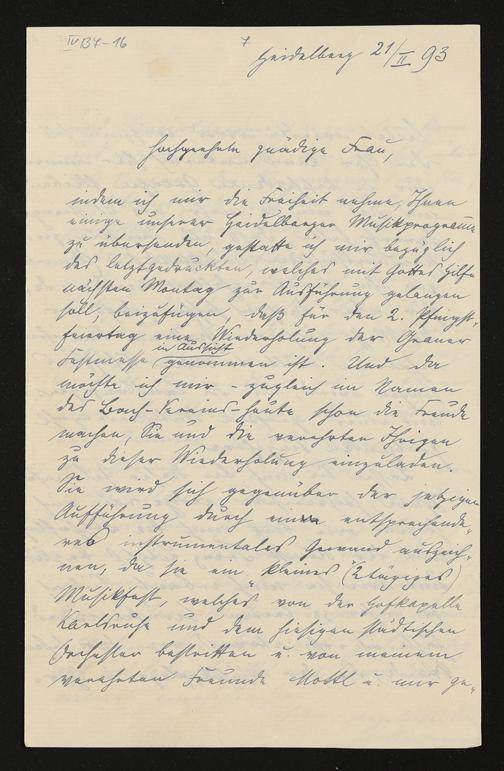 IV B7-16
7
Heidelberg 21/II 93
Hochgeehrte gnädige Frau,
indem ich mir die Freiheit nehme, Ihnen
einige unserer Heidelberger Musikprogramme
zu übersenden, gestatte ich mir bezüglich
des letztgedruckten, welches mit Gottes Hilfe
nächsten Montag zur Ausführung gelangen
soll, beizufügen, daß für den 2. Pfingst-
feiertag eine Wiederholung der Graner
in Aussicht
Festmesse genommen ist. Und da
möchte ich mir - zugleich im Namen
des Bach-Vereins - heute schon die Freude
machen, Sie und die verehrten Ihrigen
zu dieser Wiederholung einzuladen.
Sie wird sich gegenüber der jetzigen
Aufführung durch ein entsprechende-
res instrumentales Gewand auszeich-
nen, da sie ein "kleines" (2tägiges)
Musikfest, welches von der Hofkapelle
Karlsruhe und dem hiesigen städtischen
Orchester bestritten u. von meinem
verehrten Freunde Mottl u. mir ge-